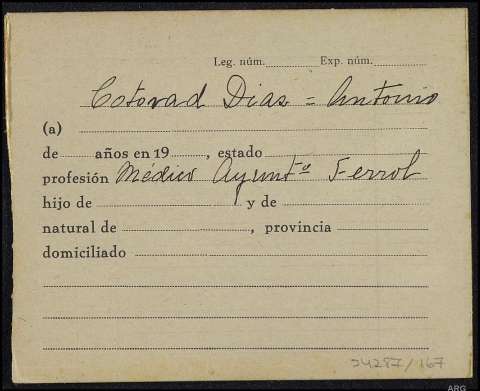 Leg. núm. Exp. núm.
Cotovad Dias = Antonio
(a)
de años en 19 , estado
profesión Médico Ayuntº Ferrol
hijo de y de
natural de , provincia
domiciliado
34287/167
ARG